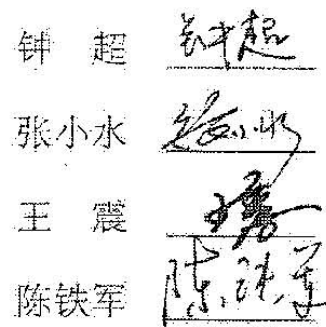 钟 超 钟超
张小水 张小水
王 震 王震
陈铁军 陈铁军